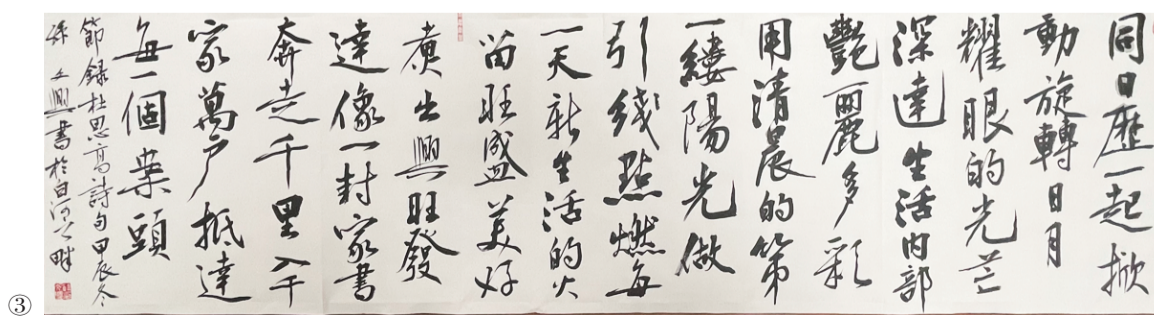 同日歷一起掀
動旋轉日月
耀眼的光芒
深達生活内部
豔麗多彩
用清晨的第
一縷陽光做
引綫點燃每
一天新生活的火
苗旺盛美好
煮出興旺發
達像一封家書
奔走千里入千
家萬户抵達
每一個案頭
節録杜思高詩句甲辰冬
文興書於白河之畔
③